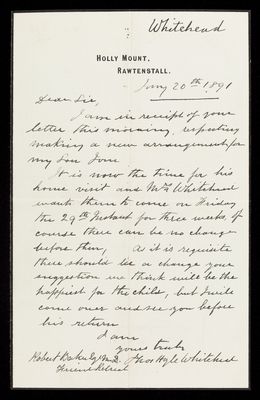 Whitehead
HOLLY MOUNT,
RAWTENSTALL.
Jany 20th 1891
Dear Sir,
I am in receipt of your
letter this morning, respecting
making a new arrangement for
my Son Tom.
It is now the time for his
home visit and Mrs Whitehead
wants them to come on Friday
the 29th Instant for three weeks of
course there can be no change
before then, As it is requisite
there should be a change your
suggestion we think will be the
happiest for the child, but I will
come over and see you before
his return
I am
yours truly
Thos Hoyle Whitehead
Robert Baker Esq M.D.
Friends Retreat